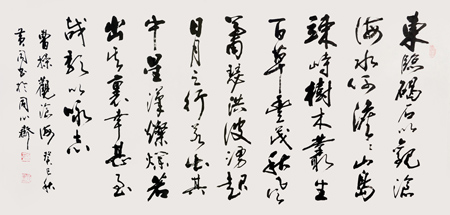 東臨碣石以觀滄
海水何澹澹山島
竦峙樹木叢生
百草豐茂秋風
蕭瑟洪波湧起
日月之行若出其
中星漢燦爛若
出其裏幸甚至
哉歌以咏志
曹操觀滄海 癸巳秋